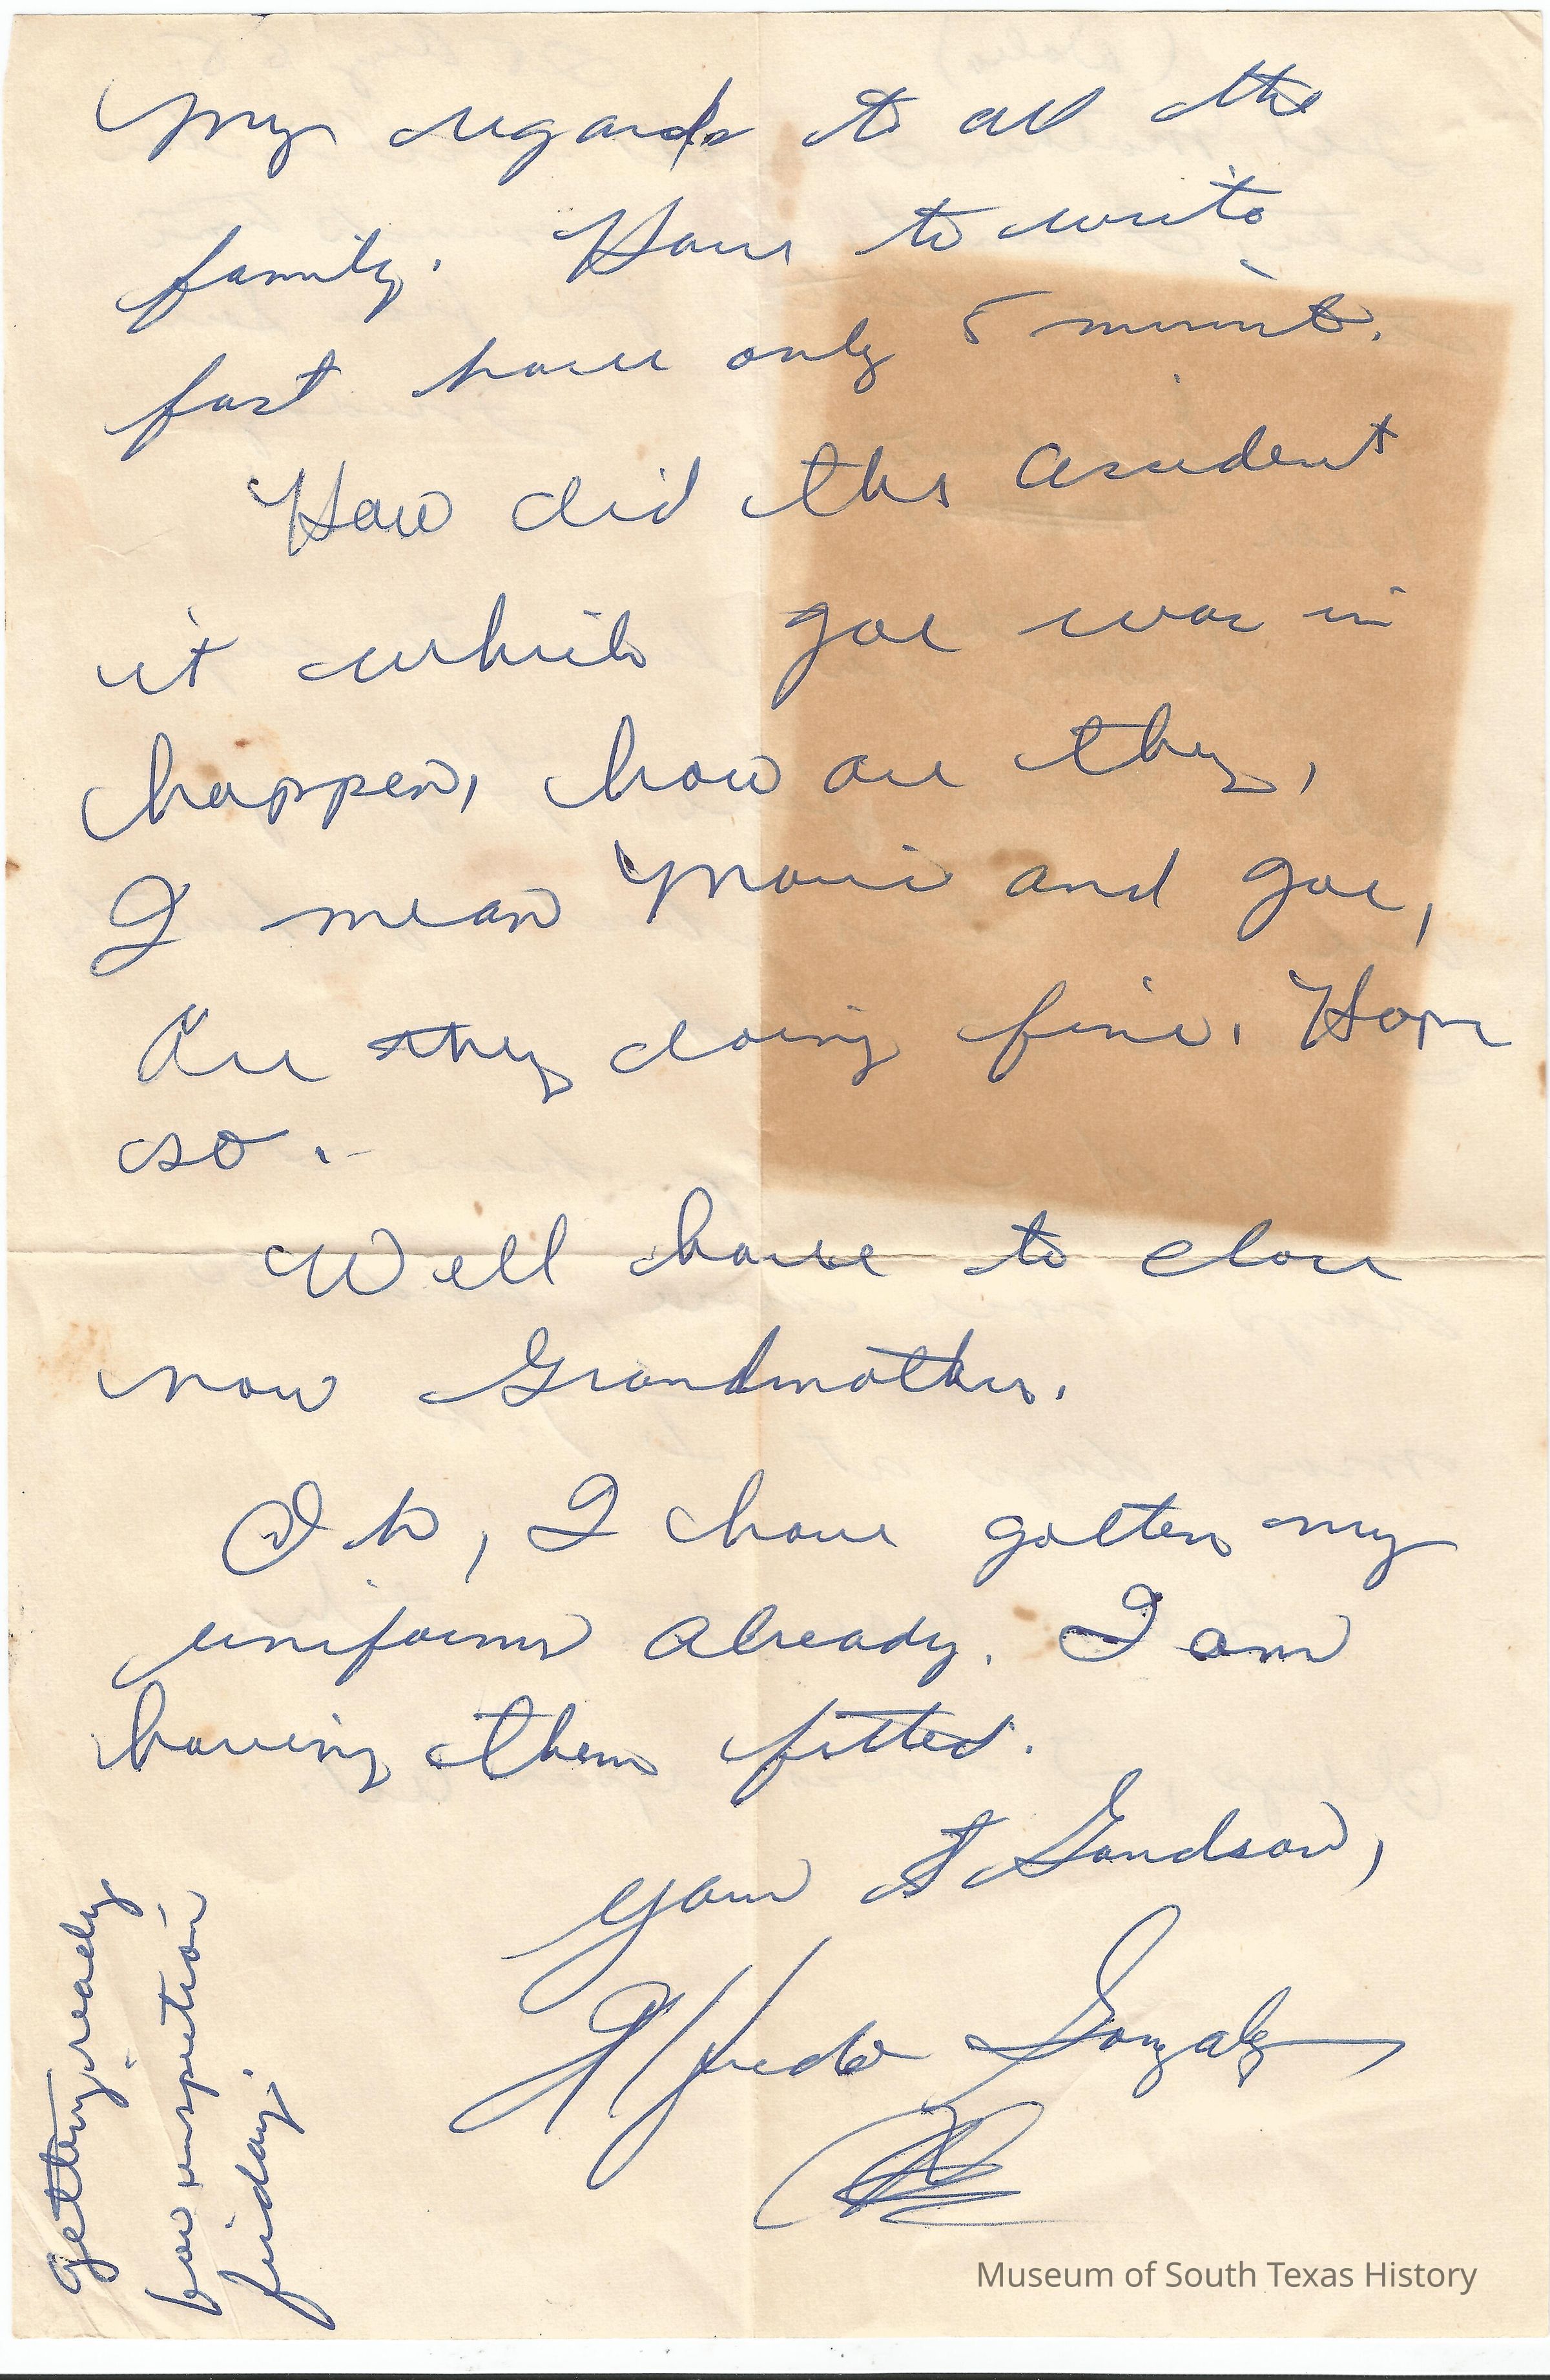 My regards to all the
family. Have to write
fast have only 5 minute.
How did the accident
it which Joe was in
happen, how are they,
I mean Marie and Joe,
Are they doing fine. Hope
so.
Well have to close
now Grandmother.
Oh, I have gotten my
uniforms already. I am
having them fitted.
Your Grandson,
Alfredo Gonzalez
getting ready
for inspection
friday.
Museum of South Texas History